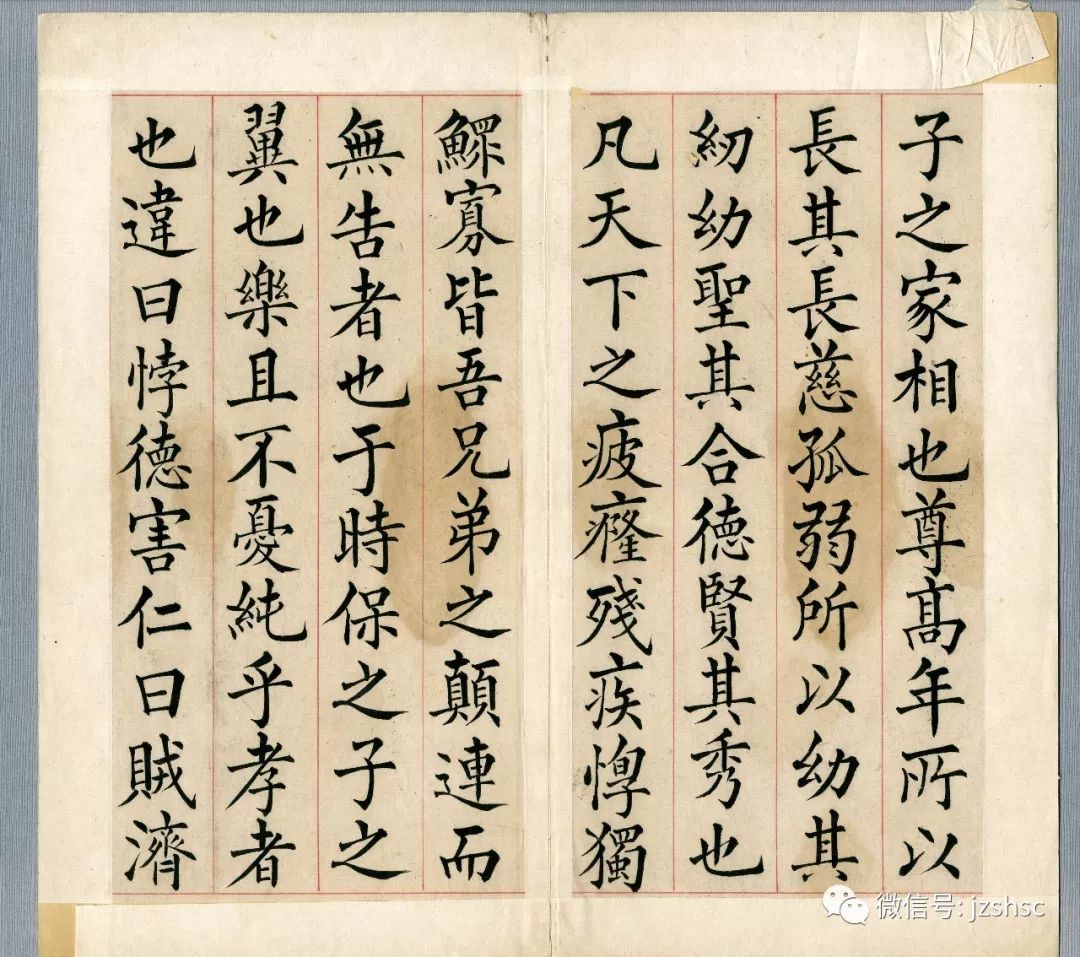 子之家相也尊髙年所以
長其長慈孤弱所以幼其
紉幼聖其合徳賢其秀也
凡天下之疲癃殘疾惸獨
鰥寡皆吾兄弟之顛連而
無告者也于時保之子之
翼也樂且不憂純乎孝者
也違曰悖徳害仁曰賊濟
微信号: jzshsc